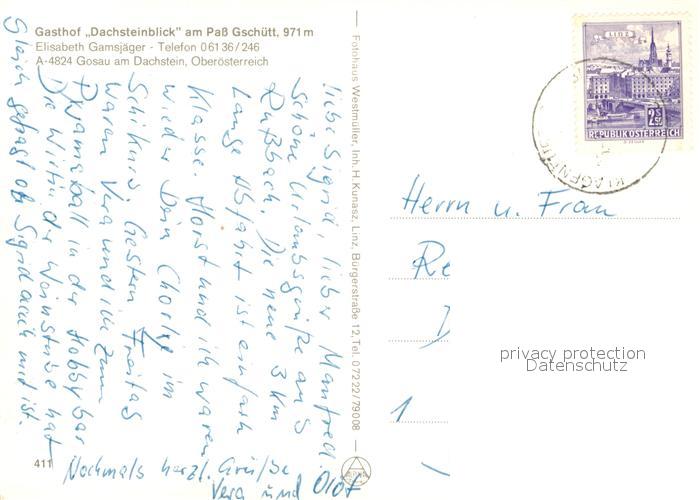 Gasthof „Dachsteinblick" am Paß Gschütt, 971 m
Elisabeth Gamsjäger - Telefon 06136/246
A-4824 Gosau am Dachstein, Oberösterreich
Liebe Sigrid, lieber Manfred
Schöne Urlaubsgrüße aus
Rußbach. Die neue 3 Km
Lange Abfahrt ist einfach
Klasse. Horst und ich waren
wieder Dein Charly im
Schikurs. Gestern Freitag
waren Vera und ich zum
in der Hobbybar
Die Wirtin der Weinstube hat
Gleich gefragt ob Sigrid auch mit ist.
Nochmals herzl. Grüße
Vera und Olof
411
Fotohaus Westmüller, Inh. H. Kunasz, Linz, Bürgerstraße 12, Tel. 07222/79008
LINZ
2.50
REPUBLIK ÖSTERREICH
KLAGENFURT
Herrn u. Frau
Re
D
1
privacy protection
Datenschutz